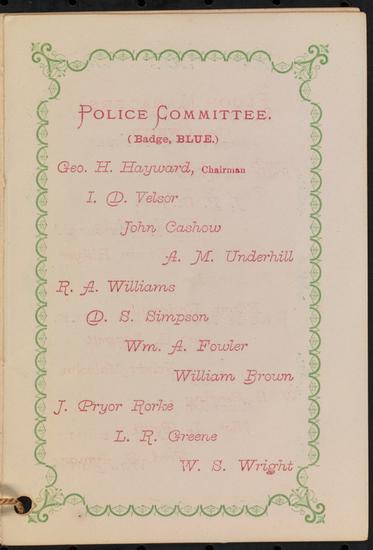 POLICE COMMITTEE.
(Badge, BLUE.)
Geo. H. Hayward, Chairman
I. D. Velsor
John Cashow
A. M. Underhill
R. A. Williams
D. S. Simpson
Wm. A. Fowler
William Brown
J. Pryor Rorke
L. R. Greene
W. S. Wright